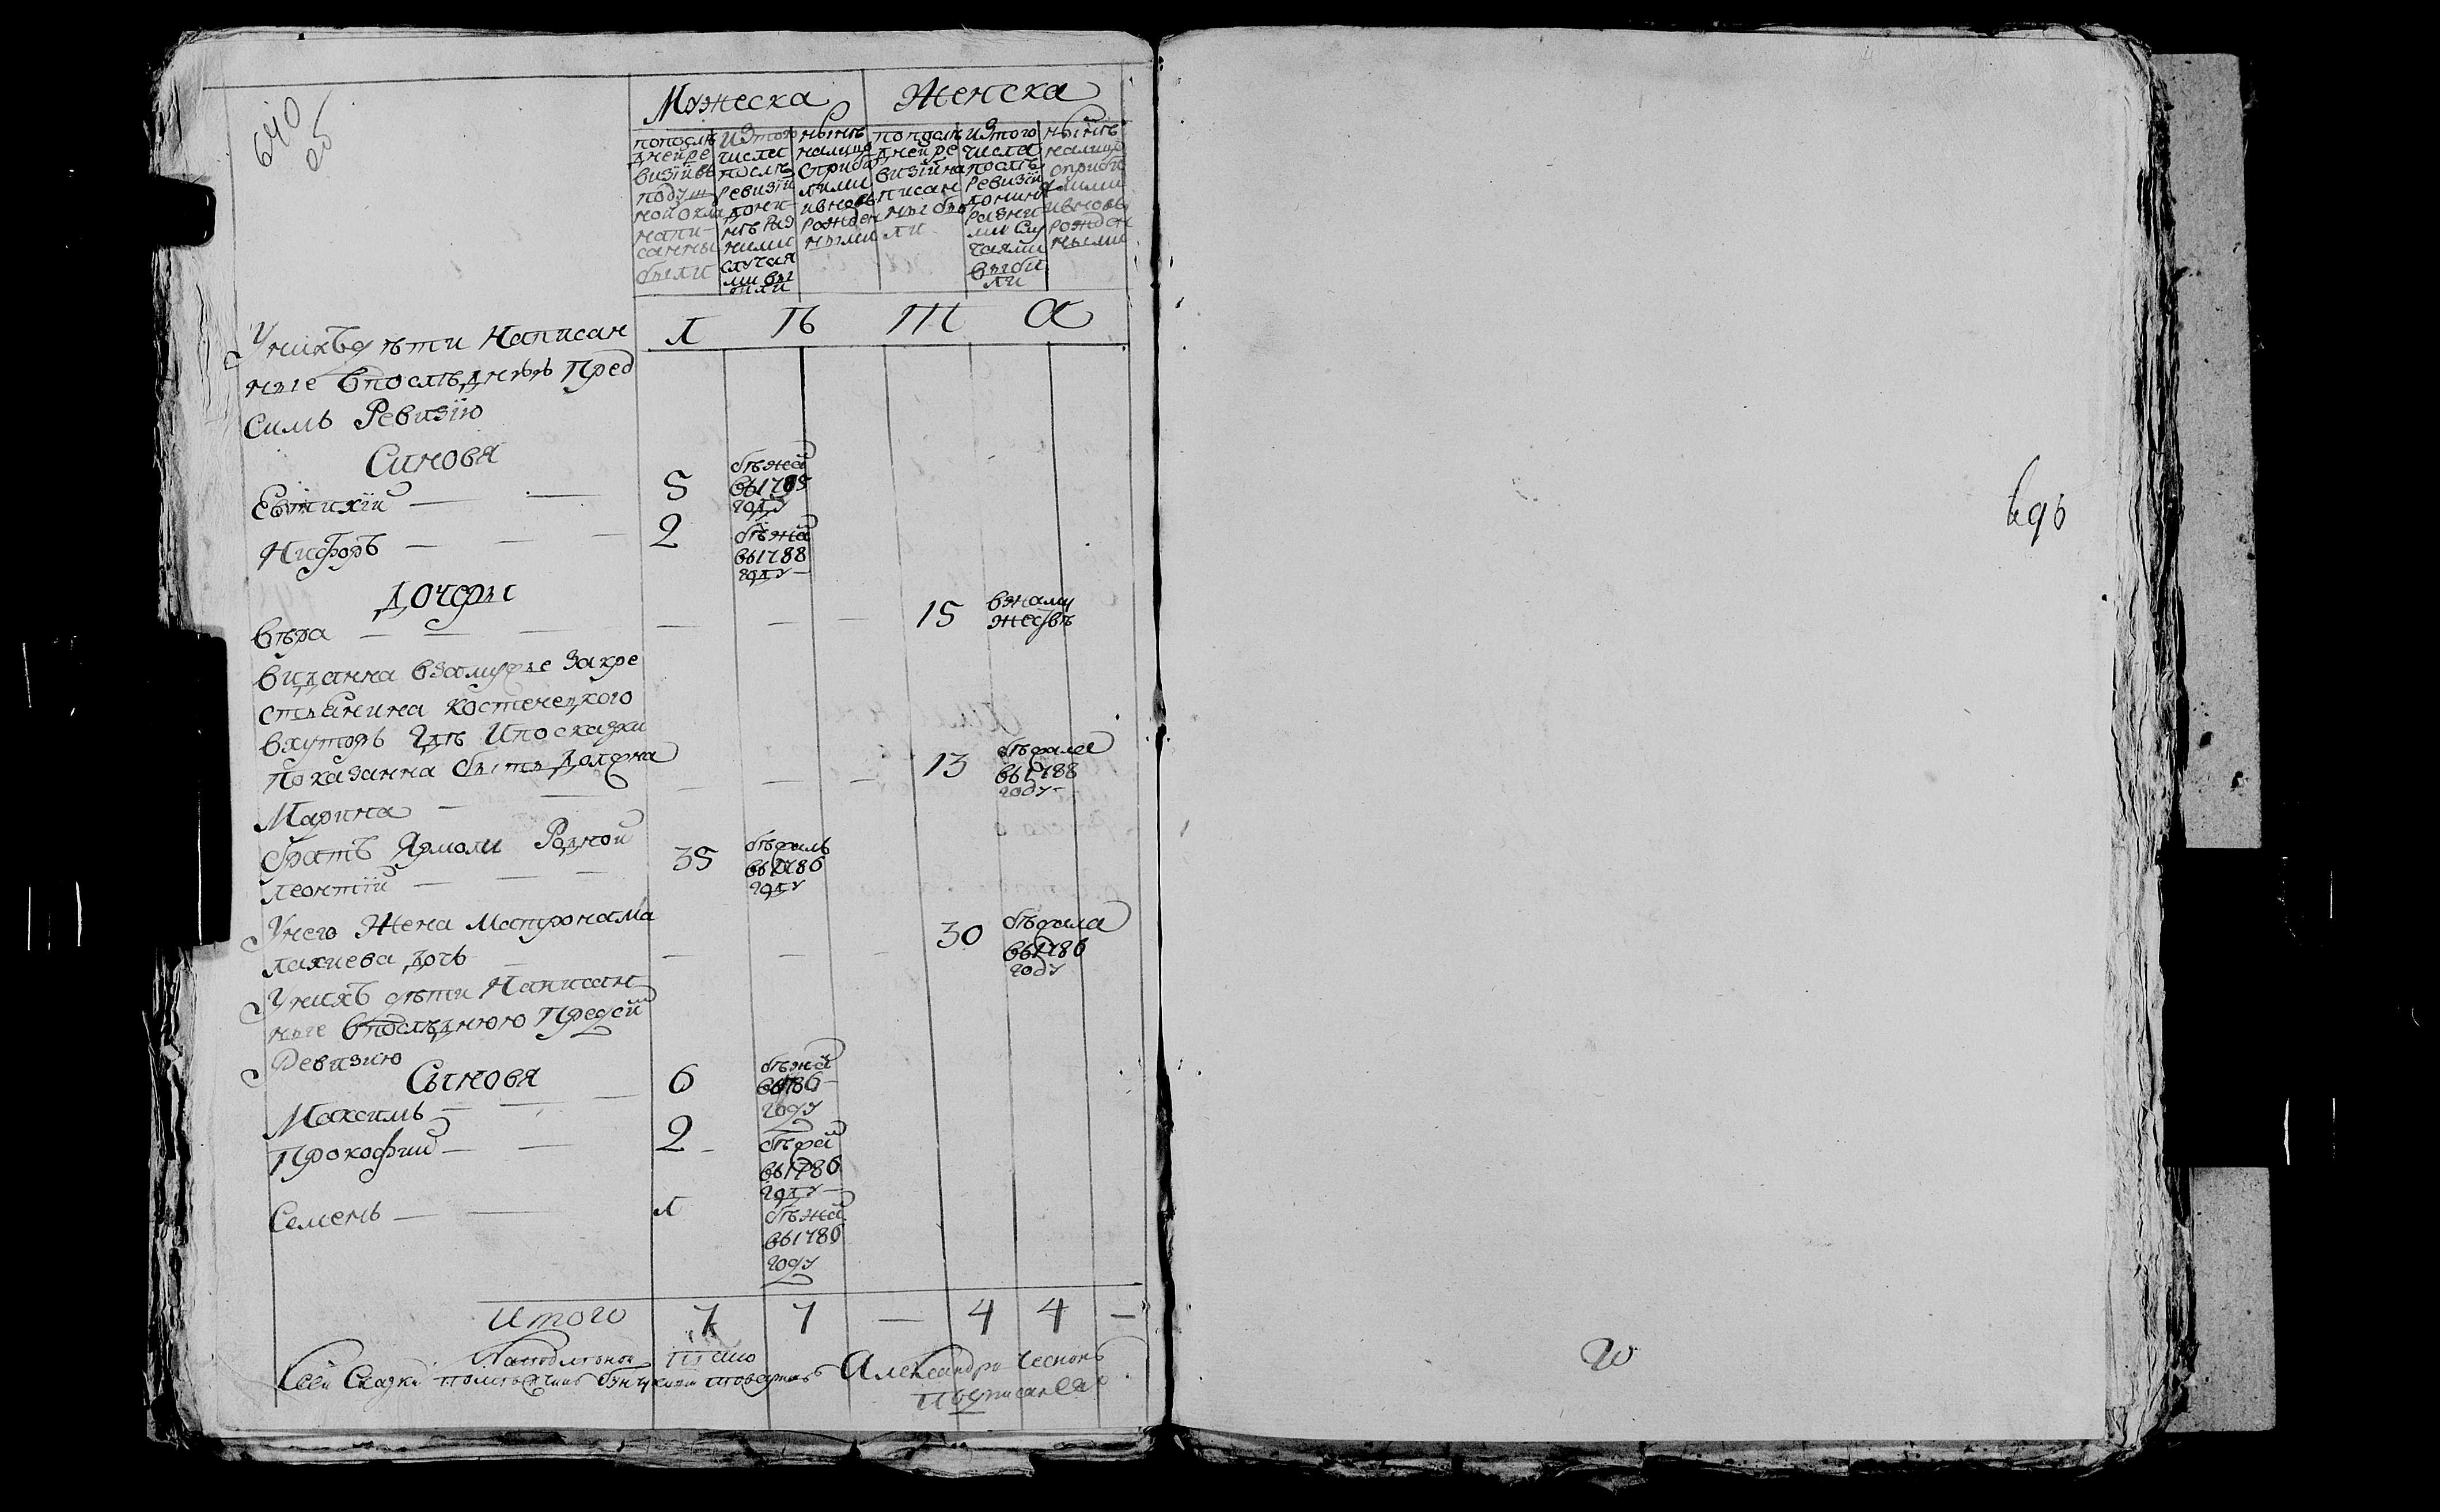 640
об
Мужеска Женска
попослѣ
дней ре
визіи въ
подуш
ной окла
напи-
санны
были
изтого
числа
послѣ
ревизіи
случая
ми вы
были
нынѣ
налицо
сприбы
лыми
ивновь
рожден
ными
попослѣ
дней ре
визіи на
писан
ны бы
ли
изтого
числа
послѣ
ревизіи
разны
ми слу
чаями
выбы
ли
нынѣ
налицо
сприбы
лыми
ивновь
рожден
ными
Л Ѣ Т А
Унихъ дѣти Написан
ные впослѣднѣѣ Пред
Симъ Ревизію
Синовя
Евтихій — — 5 бѣжа въ 1785 году
Нифоръ — — — 2 бѣжа въ 1788 году —
Дочеры
Вѣра — — — — — — 15 взаму жествѣ
Виданна взамуже Закре
стьянина Костенецкого
вхуторъ гдѣ Ипосказки
показанна быть должна
Марина — — — — — 13 бѣжала въ 1788 году —
братъ Ярмоли Родной
леонтій — — — 35 бѣжалъ въ 1786 году
Унего Жена Матрона Ма
лахиева дочь — — — — 30 бѣжала въ 1786 году
Унихъ дѣти Написан
ные впослѣднюю Предсим
Ревизию
Сыновя
Максимъ — — — 6 бѣжа въ 1786 — году
Прокофий — — 2 — бѣжал въ 1786 году —
Семенъ — — л бѣжа въ 1786 году
Итого 7 7 — 4 4 —
Ксей Сказки бунчуковий товаришъ Александръ
Подписался